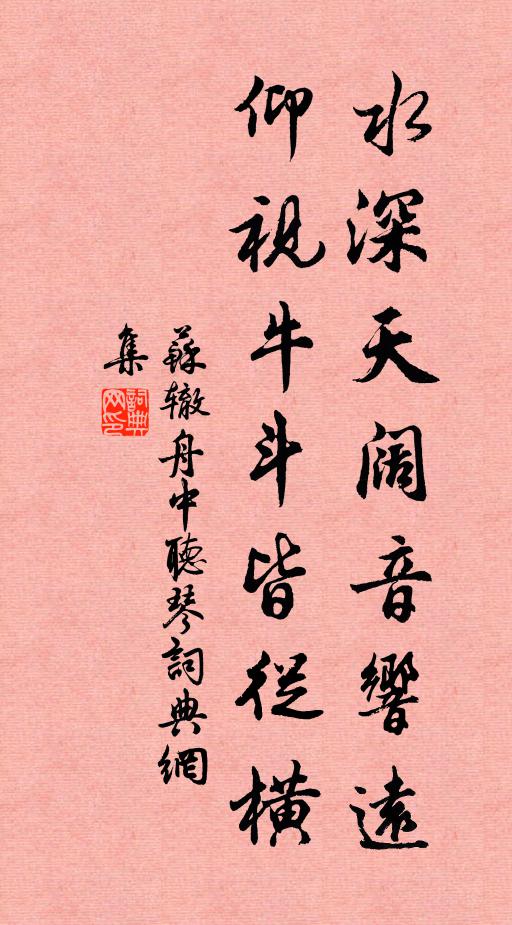 水深天阔音響遠
仰視牛斗皆從橫
蘇辙舟中聽琴詞典網
集
詞典
网印